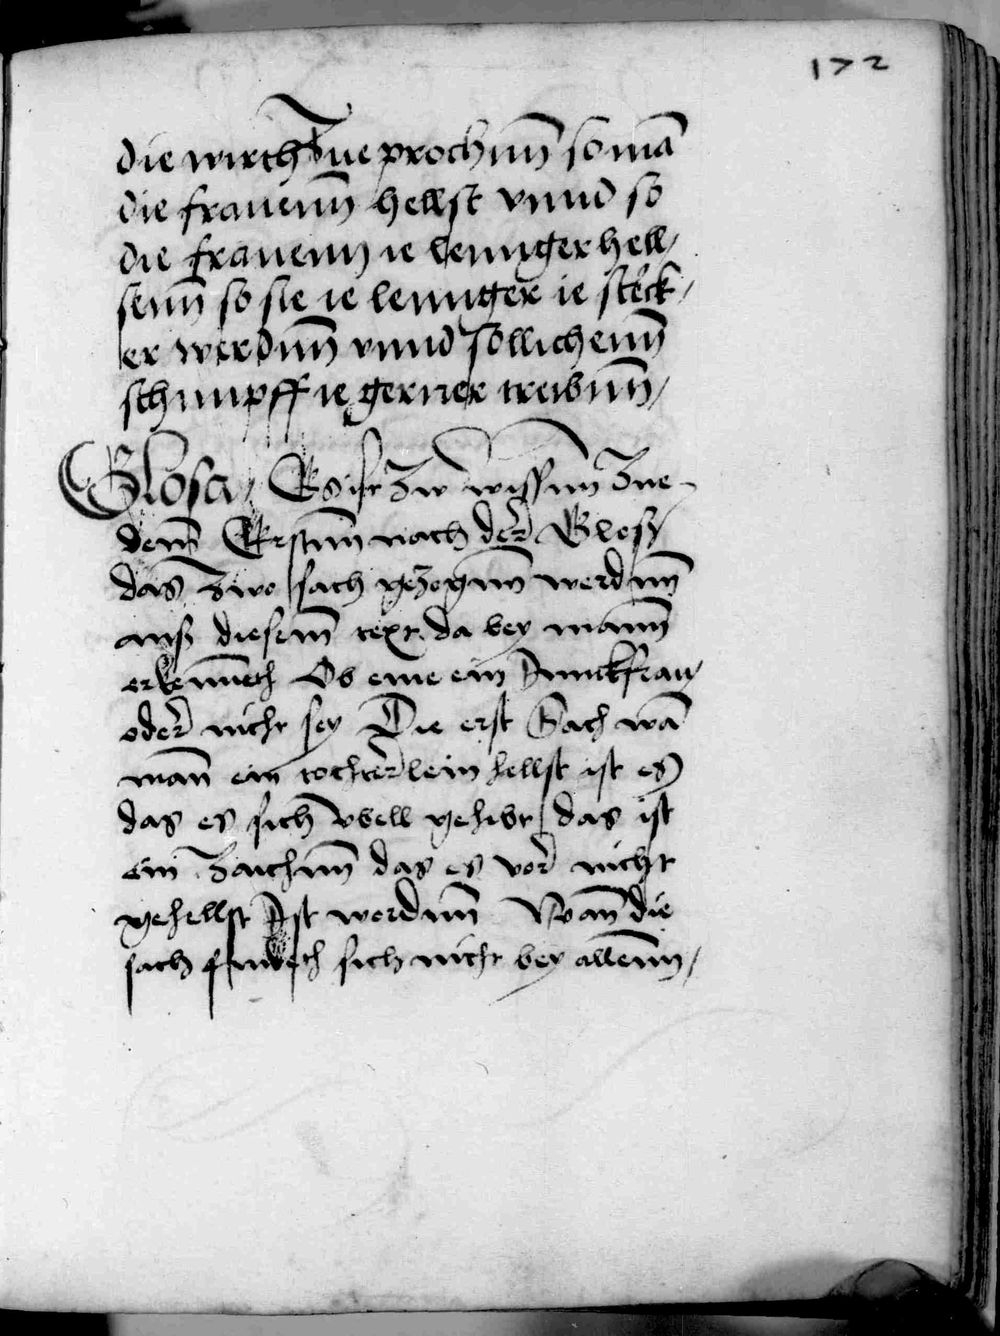 172
die wirth Zue prochnn so mā
die frauenn hellst vnnd so
die frauenn ie lennger hell/
senn so sie ie lennger ie sterck/
er werdnn vnnd sollichenn
schimpff ie gerner treibnn/
Glosa/ Es ist Zw wissnn Zue
dem Erstnn nach der Glos
das Zwo sach gezognn werdnn
auß diesem text da bey mann
erkenneth Ob eine ein Junckfrau
oder nicht sey Die erst Sach wā
mann ein tochterlein hellst ist es
das es sich vbell gehibt das ist
ein Zaichnn das es vor nicht
gehellst Ist wordnn Wann die
sach findeth sich nicht bey allenn/